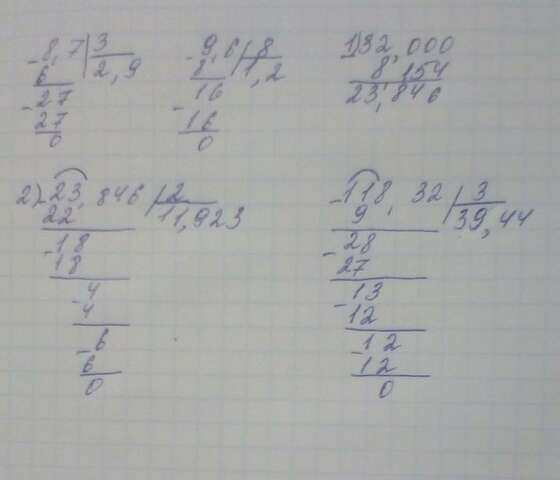 - 8,7 | 3
6 2,9
- 27
27
0
- 9,6 | 8
8 1,2
16
- 16
0
1) 32,000
8,154
23,846
2) - 23,846 | 2
22 11,923
- 18
18
- 4
4
- 6
6
0
- 118,32 | 3
9 39,44
- 28
27
- 13
12
- 12
12
0